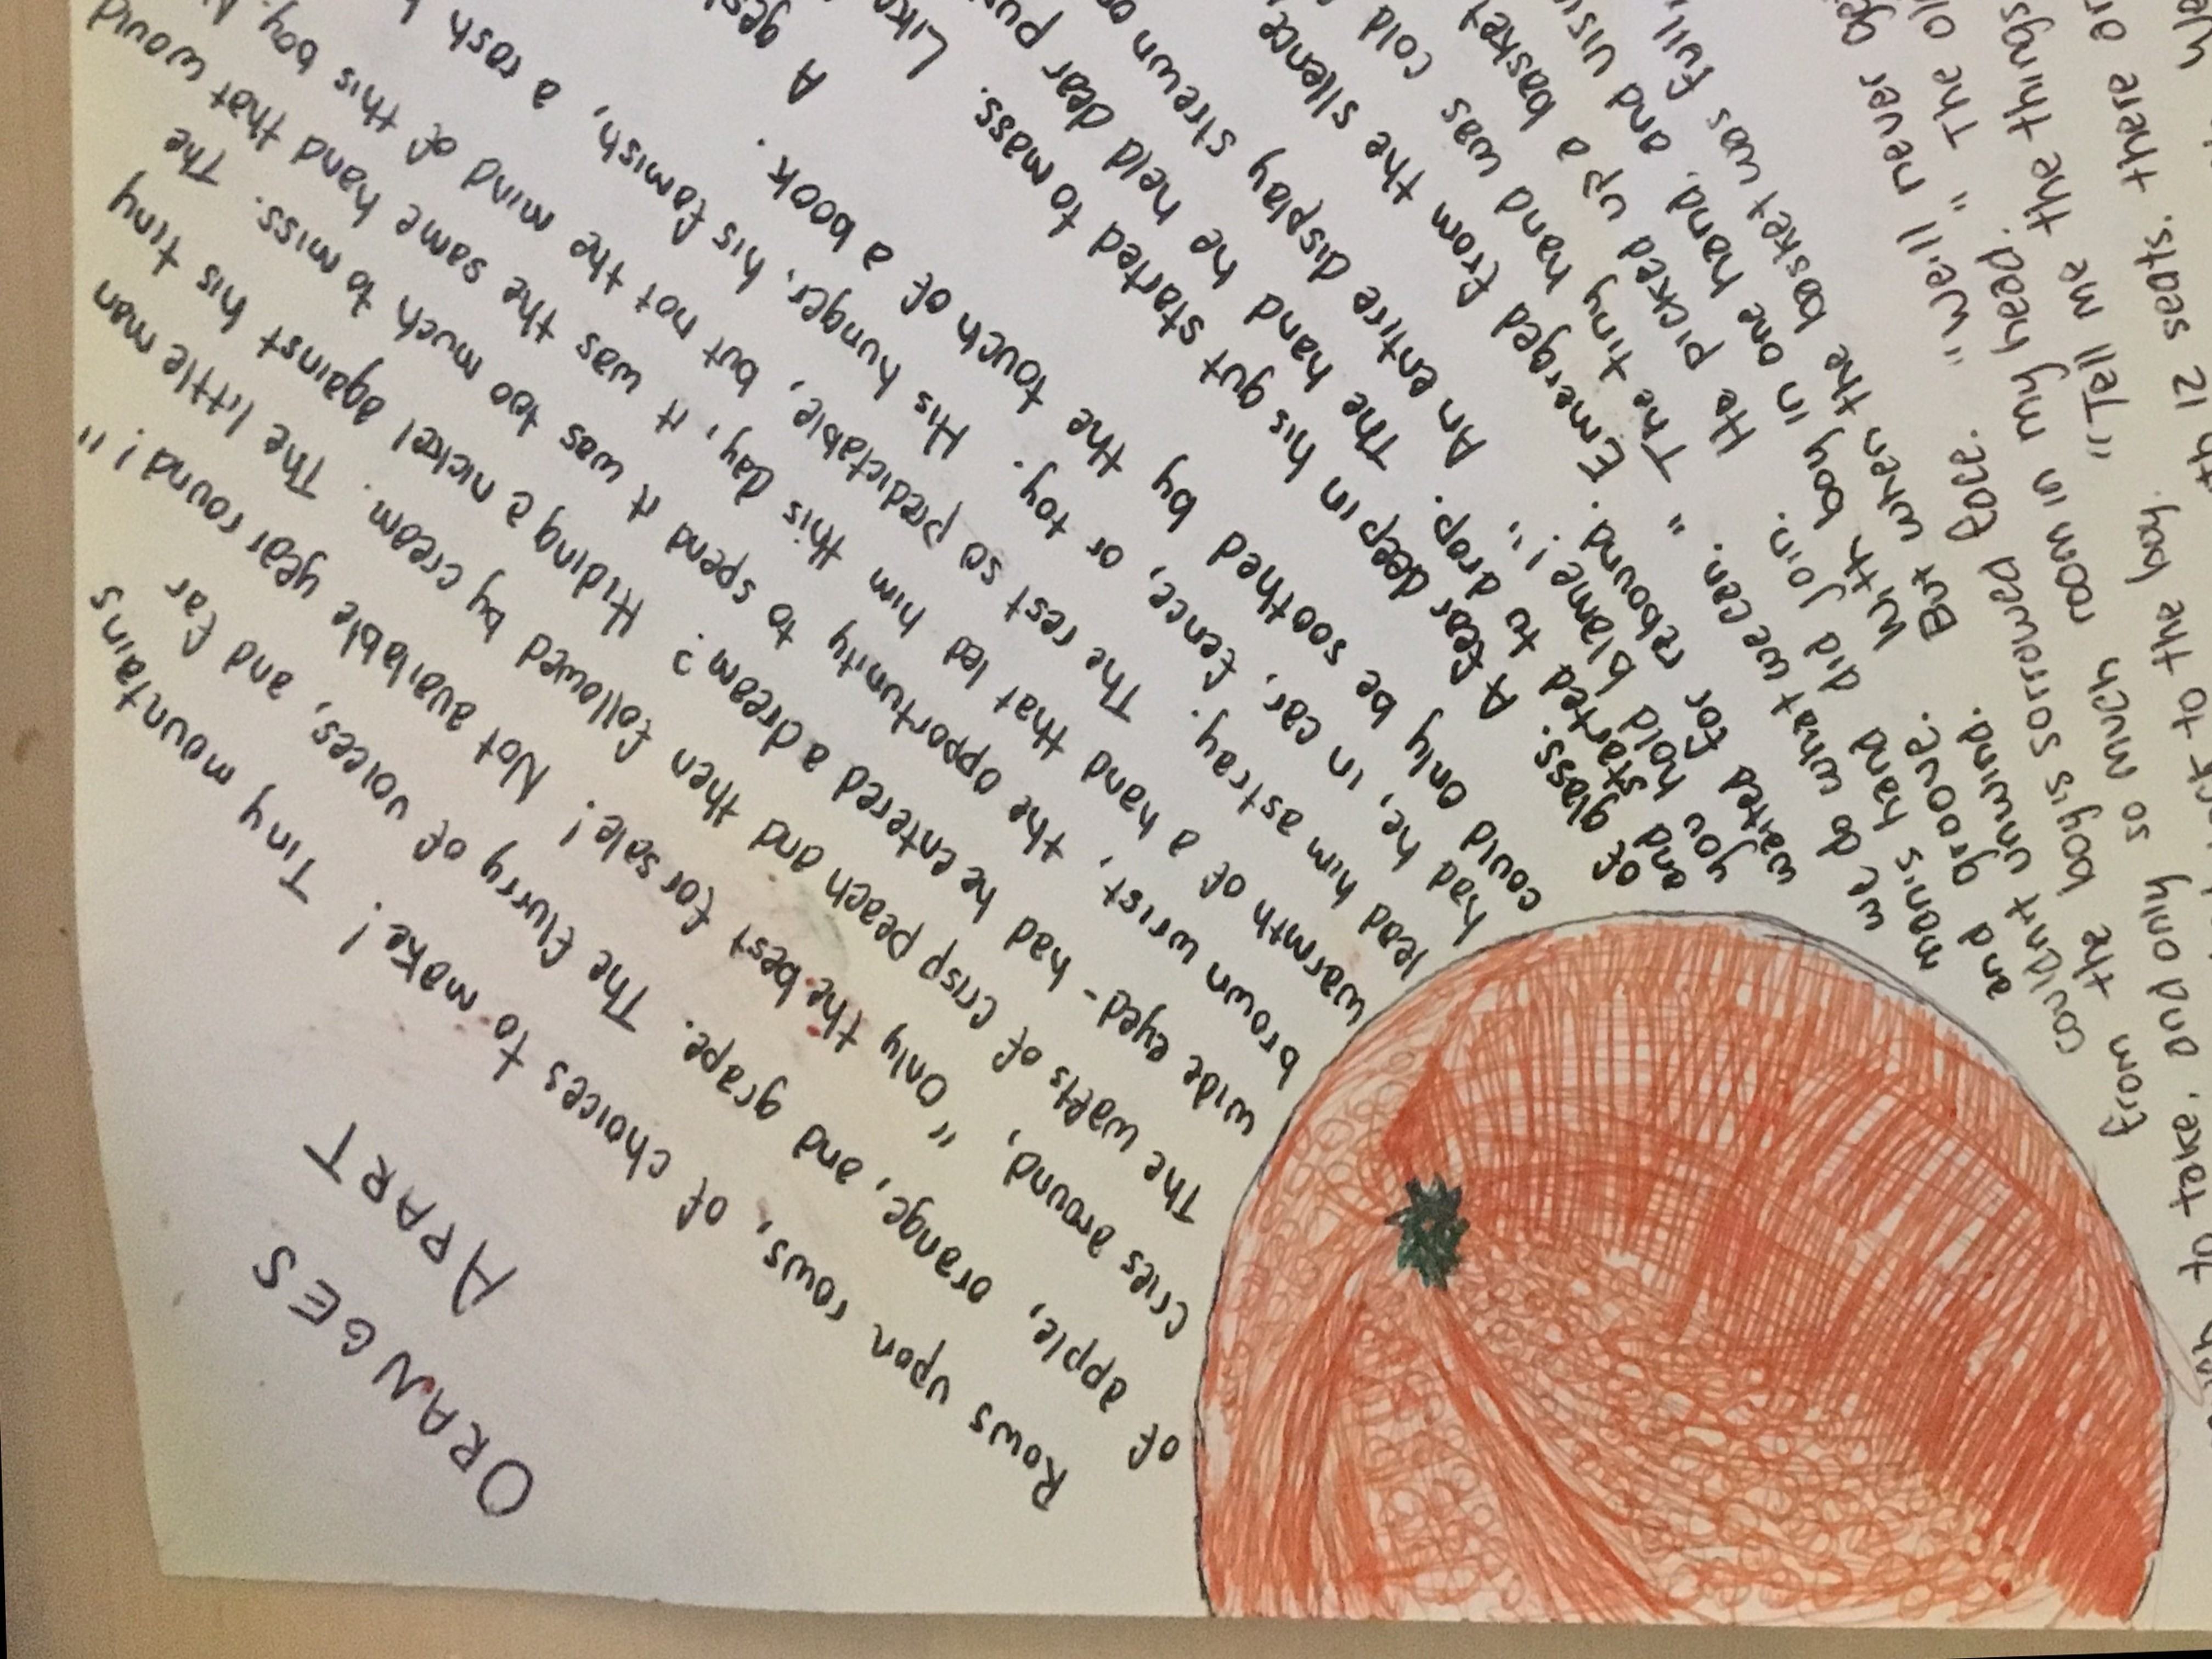 ORANGES
APART
Rows upon rows, of choices to make! Tiny mountains
of apple, orange, and grape. The flurry of voices, and far
cries around, "Only the best for sale! Not available year round!"
The wafts of crisp peach and then followed by cream. The little man
wide eyed- had he entered a dream? Hiding a nickel against his tiny
brown wrist, the opportunity to spend it was too much to miss. The
warmth of a hand that led him this day, it was the same hand that would
lead him astray. The rest so predictable, but not the mind of this boy.
had he, in car, fence, or toy. His hunger, his famish, a rash
could only be soothed by the touch of a book. A
of glass. A fear deep in his gut started to mass. Like
and started to drop. The hand he held dear
you hold blame!" An entire display strewn
waited for rebound. Emerged from the silence
we do what we can." The tiny hand was cold
man's hand did join. He picked up a basket
and groove. With boy in one hand, and
couldn't unwind. But when the basket was full
from the boy's sorrowed face. "We'll never
to take, and only so much room in my head." The
to the boy. "Tell me the things
12 seats. there